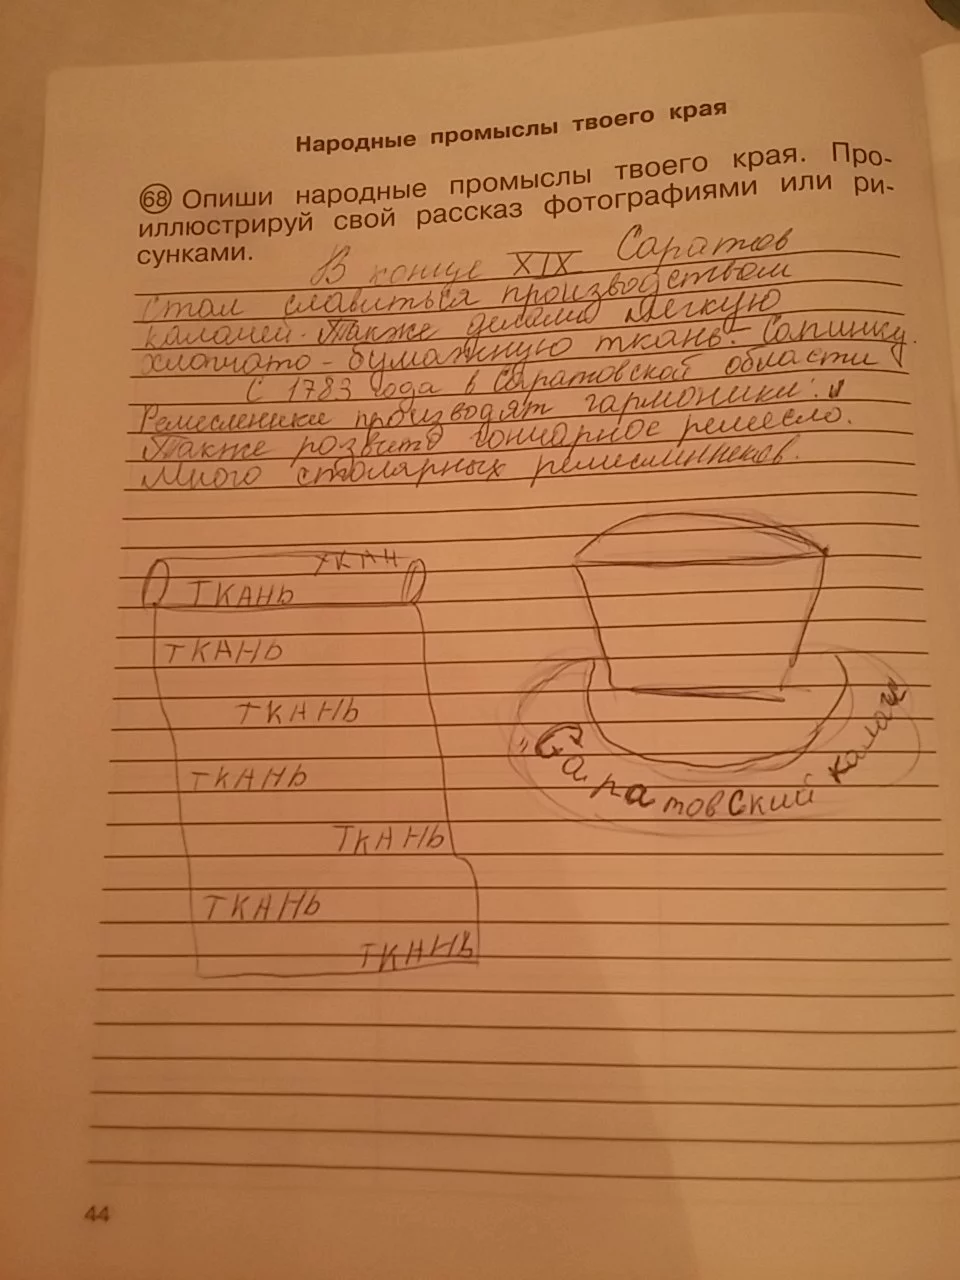 Народные промыслы твоего края
68 Опиши народные промыслы твоего края. Про-
иллюстрируй свой рассказ фотографиями или ри-
сунками.
В конце XIX Саратов
стал славиться производством
калачей. Также делали легкую
хлопчато-бумажную ткань - Сапинку.
С 1783 года в Саратовской области
Ремесленики производят гармоники. и
Также розвито гончарное ремесло.
Много столярных ремислинников.
ТКАН
ТКАНЬ
ТКАНЬ
ТКАНЬ
ТКАНЬ
ТКАНЬ
ТКАНЬ
ТКАНЬ
"Саратовский калач
44